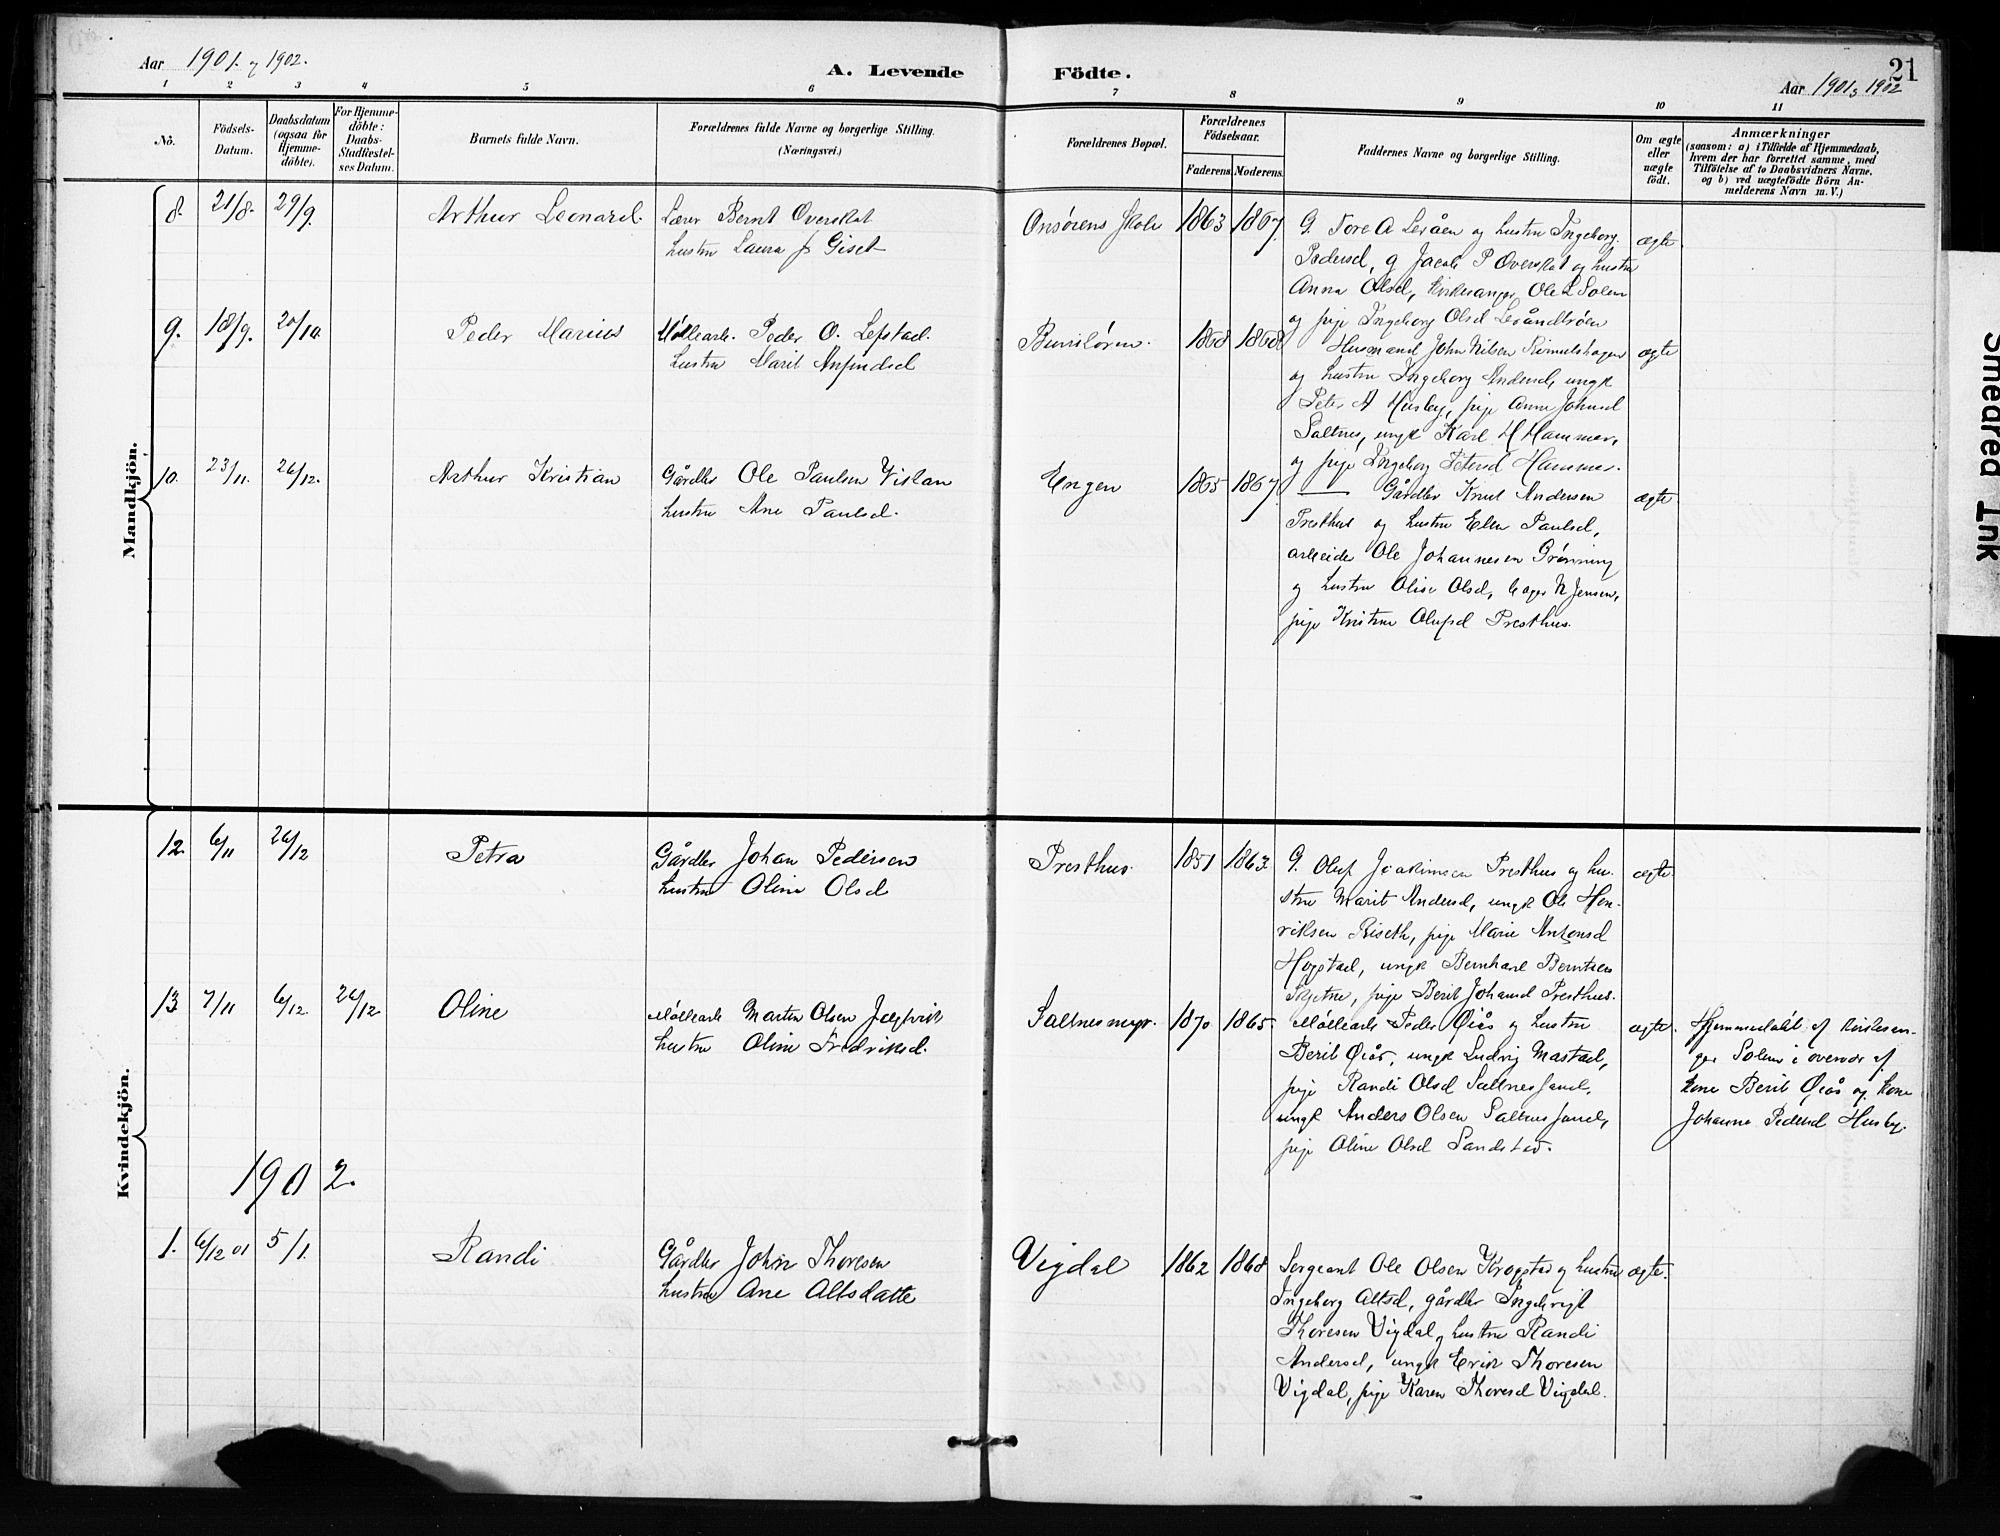 Aar 1901. og 1902.
A. Levende Födte.
21
Aar 1901 og 1902
1 2 3 4 5 6 7 8 9 10 11
No.
Födsels-
Datum.
Daabsdatum
(ogsaa for
Hjemme-
döbte).
For Hjemme-
döbte:
Daabs-
Stadfæstel-
ses Datum.
Barnets fulde Navn.
Forældrenes fulde Navne og borgerlige Stilling.
(Næringsvei.)
Forældrenes Bopæl.
Forældrenes
Födselsaar.
Faderens Moderens
Faddernes Navne og borgerlige Stilling.
Om ægte
eller
uægte
födt.
Anmærkninger
(saasom: a) i Tilfælde af Hjemmedaab,
hvem der har forrettet samme, med
Tilföielse af to Daabsvidners Navne,
og b) ved uægtefödte Börn An-
melderens Navn m. V.)
Mandkjön.
8. 21/8. 29/9. Arthur Leonard.
Lærer Bernt Overskot
hustru Laura J Giset
Onsörens Skole 1863 1867.
G. Tore A Leråen og hustru Ingeborg
Pedersd, g Jacob P Overskot og hustru
Anna Olsd, Kirkesanger Ole L Solem
og pige Ingeborg Olsd Leråndtröen
ægte
9. 18/9. 20/10. Peder Marius
Möllearb. Peder O. Lefstad.
hustru Marit Anfindsd
1868 1868
Husmand John Nilsen Rimulshagen
og hustru Ingeborg Andersd, ungk
Peter A Husby, pige Anne Johnsd
Saltnes, ungk Karl H Hammer,
og pige Ingeborg Petersd Hammer.
ægte
10. 23/11. 26/12. Arthur Kristian
Gårdbr Ole Paulsen Vislan
hustru Ane Paulsd.
Engen 1865 1867.
Gårdbr Knut Andersen
Presthus og hustru Elen Paulsd,
arbeider Ole Johannesen Grönning
og hustru Olise Olsd, bager N Jensen,
pige Kristine Olufsd Presthus.
ægte
Kvindekjön.
12. 6/11 26/12 Petra
Gårdbr Johan Pedersen
hustru Oline Olsd
Presthus. 1851 1863.
G. Oluf Joakimsen Presthus og hu-
stru Marit Andersd, ungk Ole Hen-
riksen Riseth, pige Marie Antonsd
Hogstad, ungk Bernhard Berntsen
Skjetne, pige Berit Johansd Presthus.
ægte.
13 7/11 6/12. 26/12. Oline
Möllearb Martin Olsen Jægtvik
hustru Oline Fredriksd.
Saltnesmyr. 1870 1865.
Möllearb Peder Öiås og hustru
Berit Öiås, ungk Ludvig Mastad,
pige Randi Olsd Saltnessand,
ungk Anders Olsen Saltnessand,
pige Oline Olsd Sandstad.
ægte.
Hjemmedöbt af kirkesan-
ger Solem i overvær af
kone Berit Öiås og kone
Johanna Pedersd Husby.
1902.
1. 6/12 01 5/1. Randi
Gårdbr John Thoresen
hustru Ane Altsdatte
Vigdal 1862 1868
Sergeant Ole Olsen Krogstad og hustru
Ingeborg Altsd, gårdbr Ingebrigt
Thoresen Vigdal og hustru Randi
Andersd, ungk Erik Thoresen
Vigdal, pige Karen Thoresd Vigdal.
ægte.
Smeared Ink